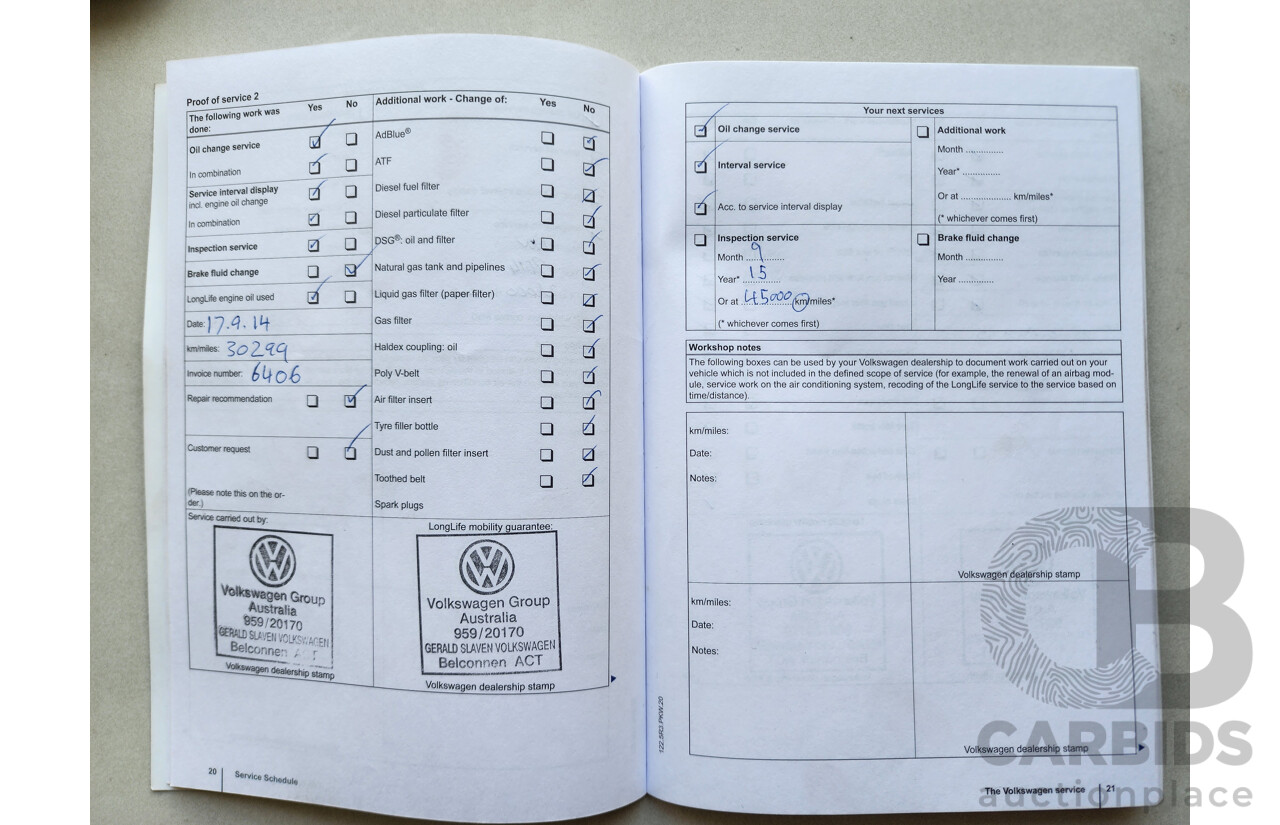 Proof of service 2
The following work was done:
Yes
No
Additional work - Change of:
Yes
No
Oil change service
In combination
Service interval display
incl. engine oil change
In combination
Inspection service
Brake fluid change
LongLife engine oil used
Date: 17.9.14
km/miles: 30299
Invoice number: 6406
Repair recommendation
Customer request
(Please note this on the or-
der.)
AdBlue®
ATF
Diesel fuel filter
Diesel particulate filter
DSG®: oil and filter
Natural gas tank and pipelines
Liquid gas filter (paper filter)
Gas filter
Haldex coupling: oil
Poly V-belt
Air filter insert
Tyre filler bottle
Dust and pollen filter insert
Toothed belt
Spark plugs
Service carried out by:
Volkswagen Group
Australia
959/20170
GERALD SLAVEN VOLKSWAGEN
Belconnen
Volkswagen dealership stamp
LongLife mobility guarantee:
Volkswagen Group
Australia
959/20170
GERALD SLAVEN VOLKSWAGEN
Belconnen ACT
Volkswagen dealership stamp
20
Service Schedule
Your next services
Oil change service
Interval service
Acc. to service interval display
Additional work
Month ..............
Year* ..............
Or at ................... km/miles*
(* whichever comes first)
Inspection service
Month 9
Year* 15
Or at 45000 km/miles*
(* whichever comes first)
Brake fluid change
Month ..............
Year ..............
Workshop notes
The following boxes can be used by your Volkswagen dealership to document work carried out on your
vehicle which is not included in the defined scope of service (for example, the renewal of an airbag mod-
ule, service work on the air conditioning system, recoding of the LongLife service to the service based on
time/distance).
km/miles:
Date:
Notes:
Volkswagen dealership stamp
km/miles:
Date:
Notes:
Volkswagen dealership stamp
122.5R3.PKW.20
The Volkswagen service
21
CB
CARBIDS
auctionplace